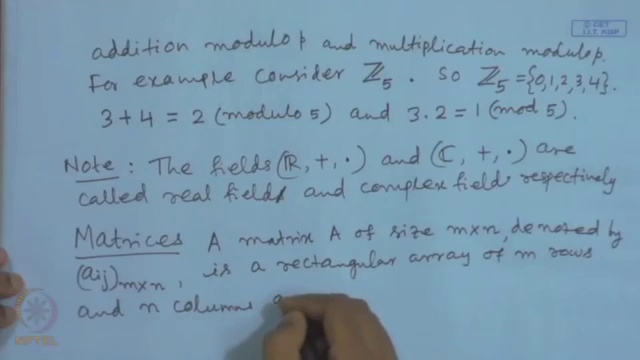 © CET
I.I.T. KGP
addition modulo p and multiplication modulo p.
For example consider ℤ₅. So ℤ₅ = {0,1,2,3,4}.
3+4 = 2 (modulo 5) and 3.2 = 1 (mod 5).
Note: The fields (ℝ, +, ·) and (ℂ, +, ·) are
called real field and complex field respectively
Matrices A matrix A of size m×n, denoted by
(aij)m×n, is a rectangular array of m rows
and n columns
NPTEL